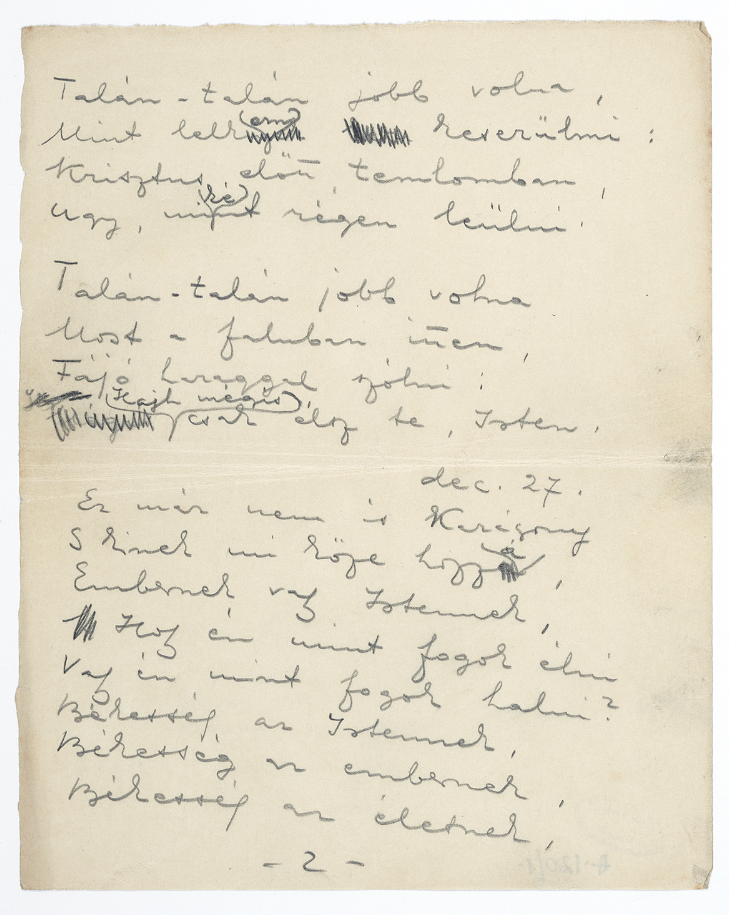 Talán-talán jobb volna,
Mint lelkem keserülni:
Krisztus előtt templomban,
Ugy, mint régen leülni.
Talán-talán jobb volna
Most a faluban itten,
Fájó haraggal szólni:
Hajh mégis csak élsz te, Isten.
dec. 27.
Ez már nem is Karácsony
S kinek mi köze hozzá,
Embernek vagy Istennek,
Hogy én mint fogok élni
Vagy én mint fogok halni?
Békesség az Istennek,
Békesség az embernek,
Békesség az életnek,
- 2 -